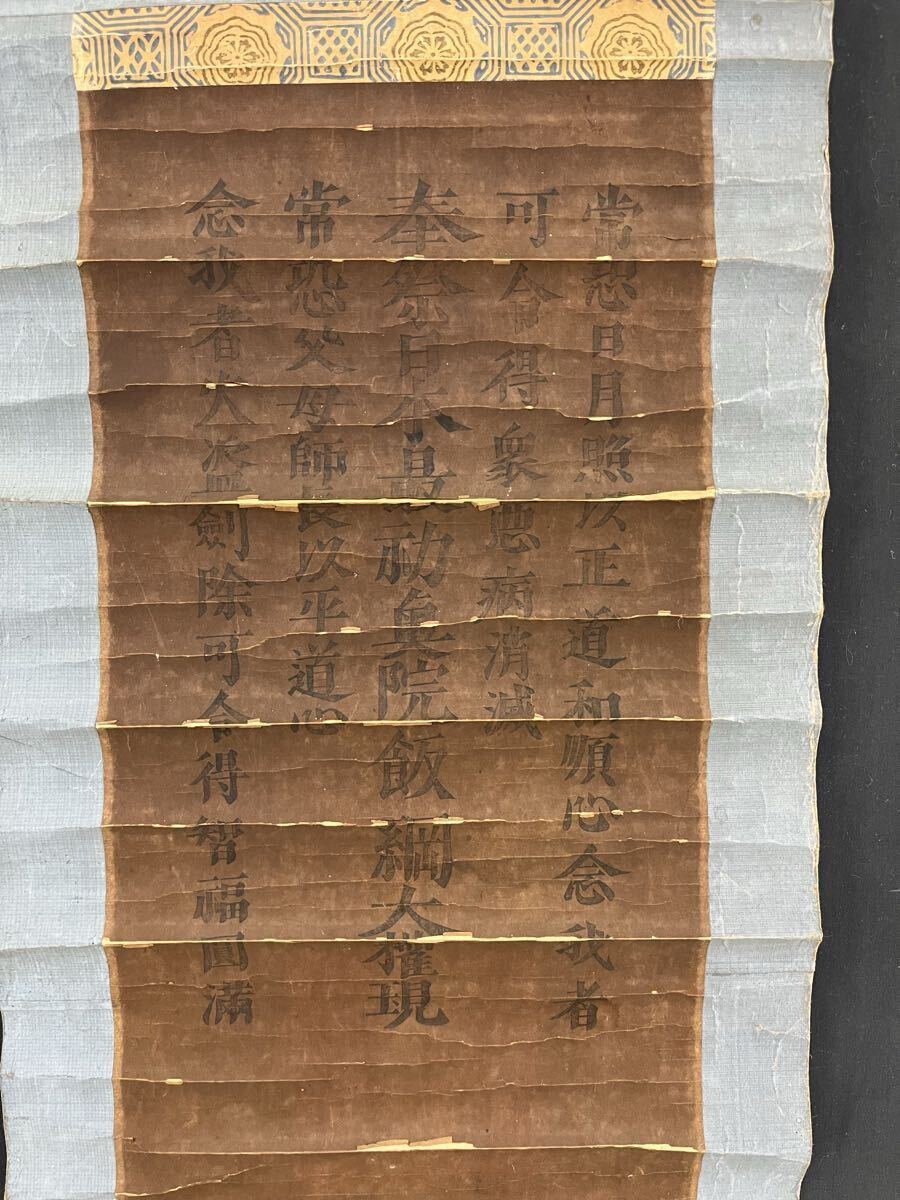 常恐日月照以正道和順心念我者
可令得衆悪病消滅
奉祭日本最初魚院飯綱大権現
常恐父母師長以平道心
念我者火盗劍除可令得智福圓滿